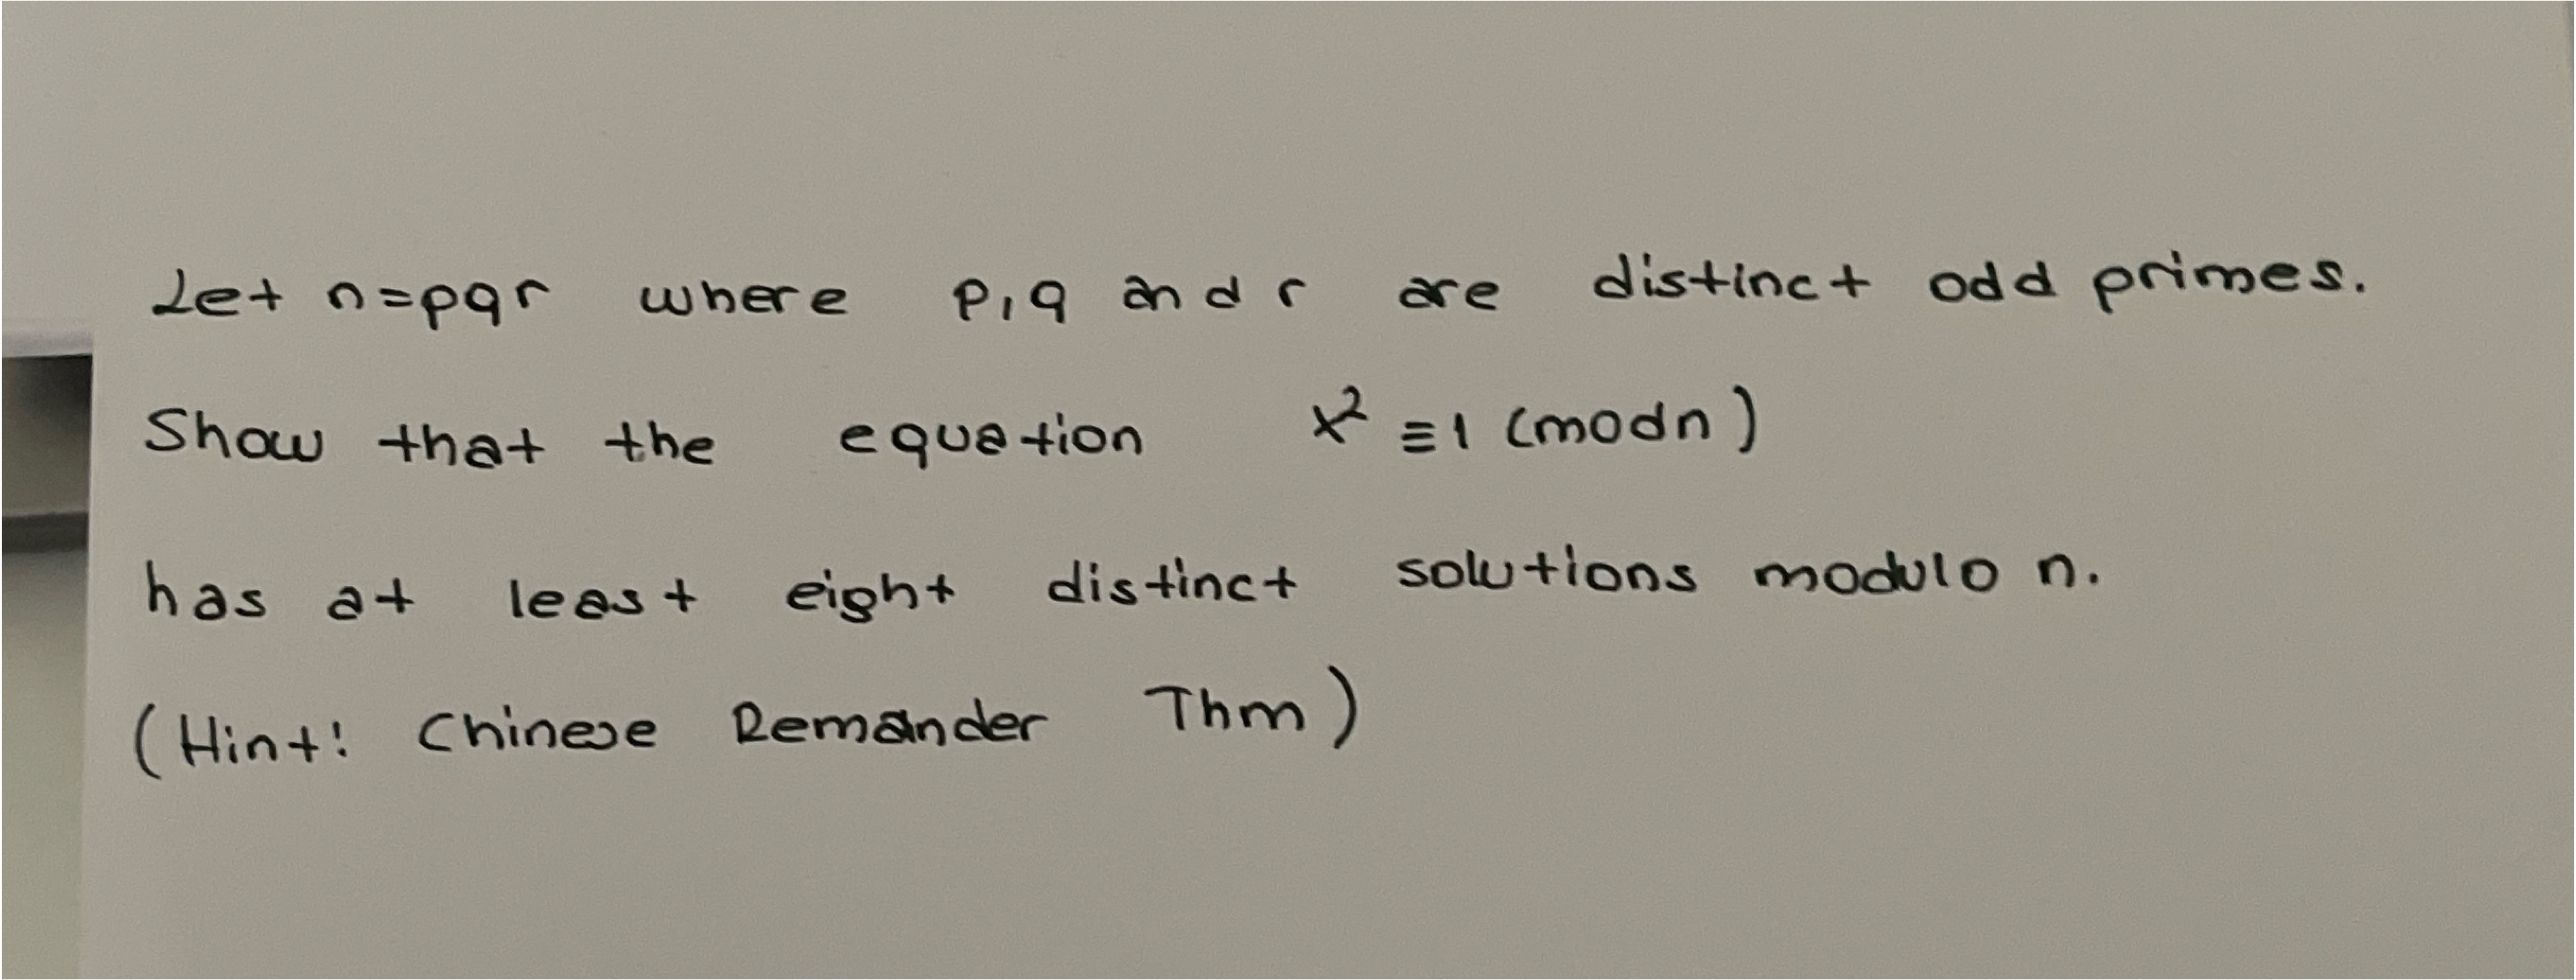 Let n=pqr where p,q and r are distinct odd primes.
Show that the equation x² ≡ 1 (modn)
has at least eight distinct solutions modulo n.
(Hint: Chinese Remander Thm)